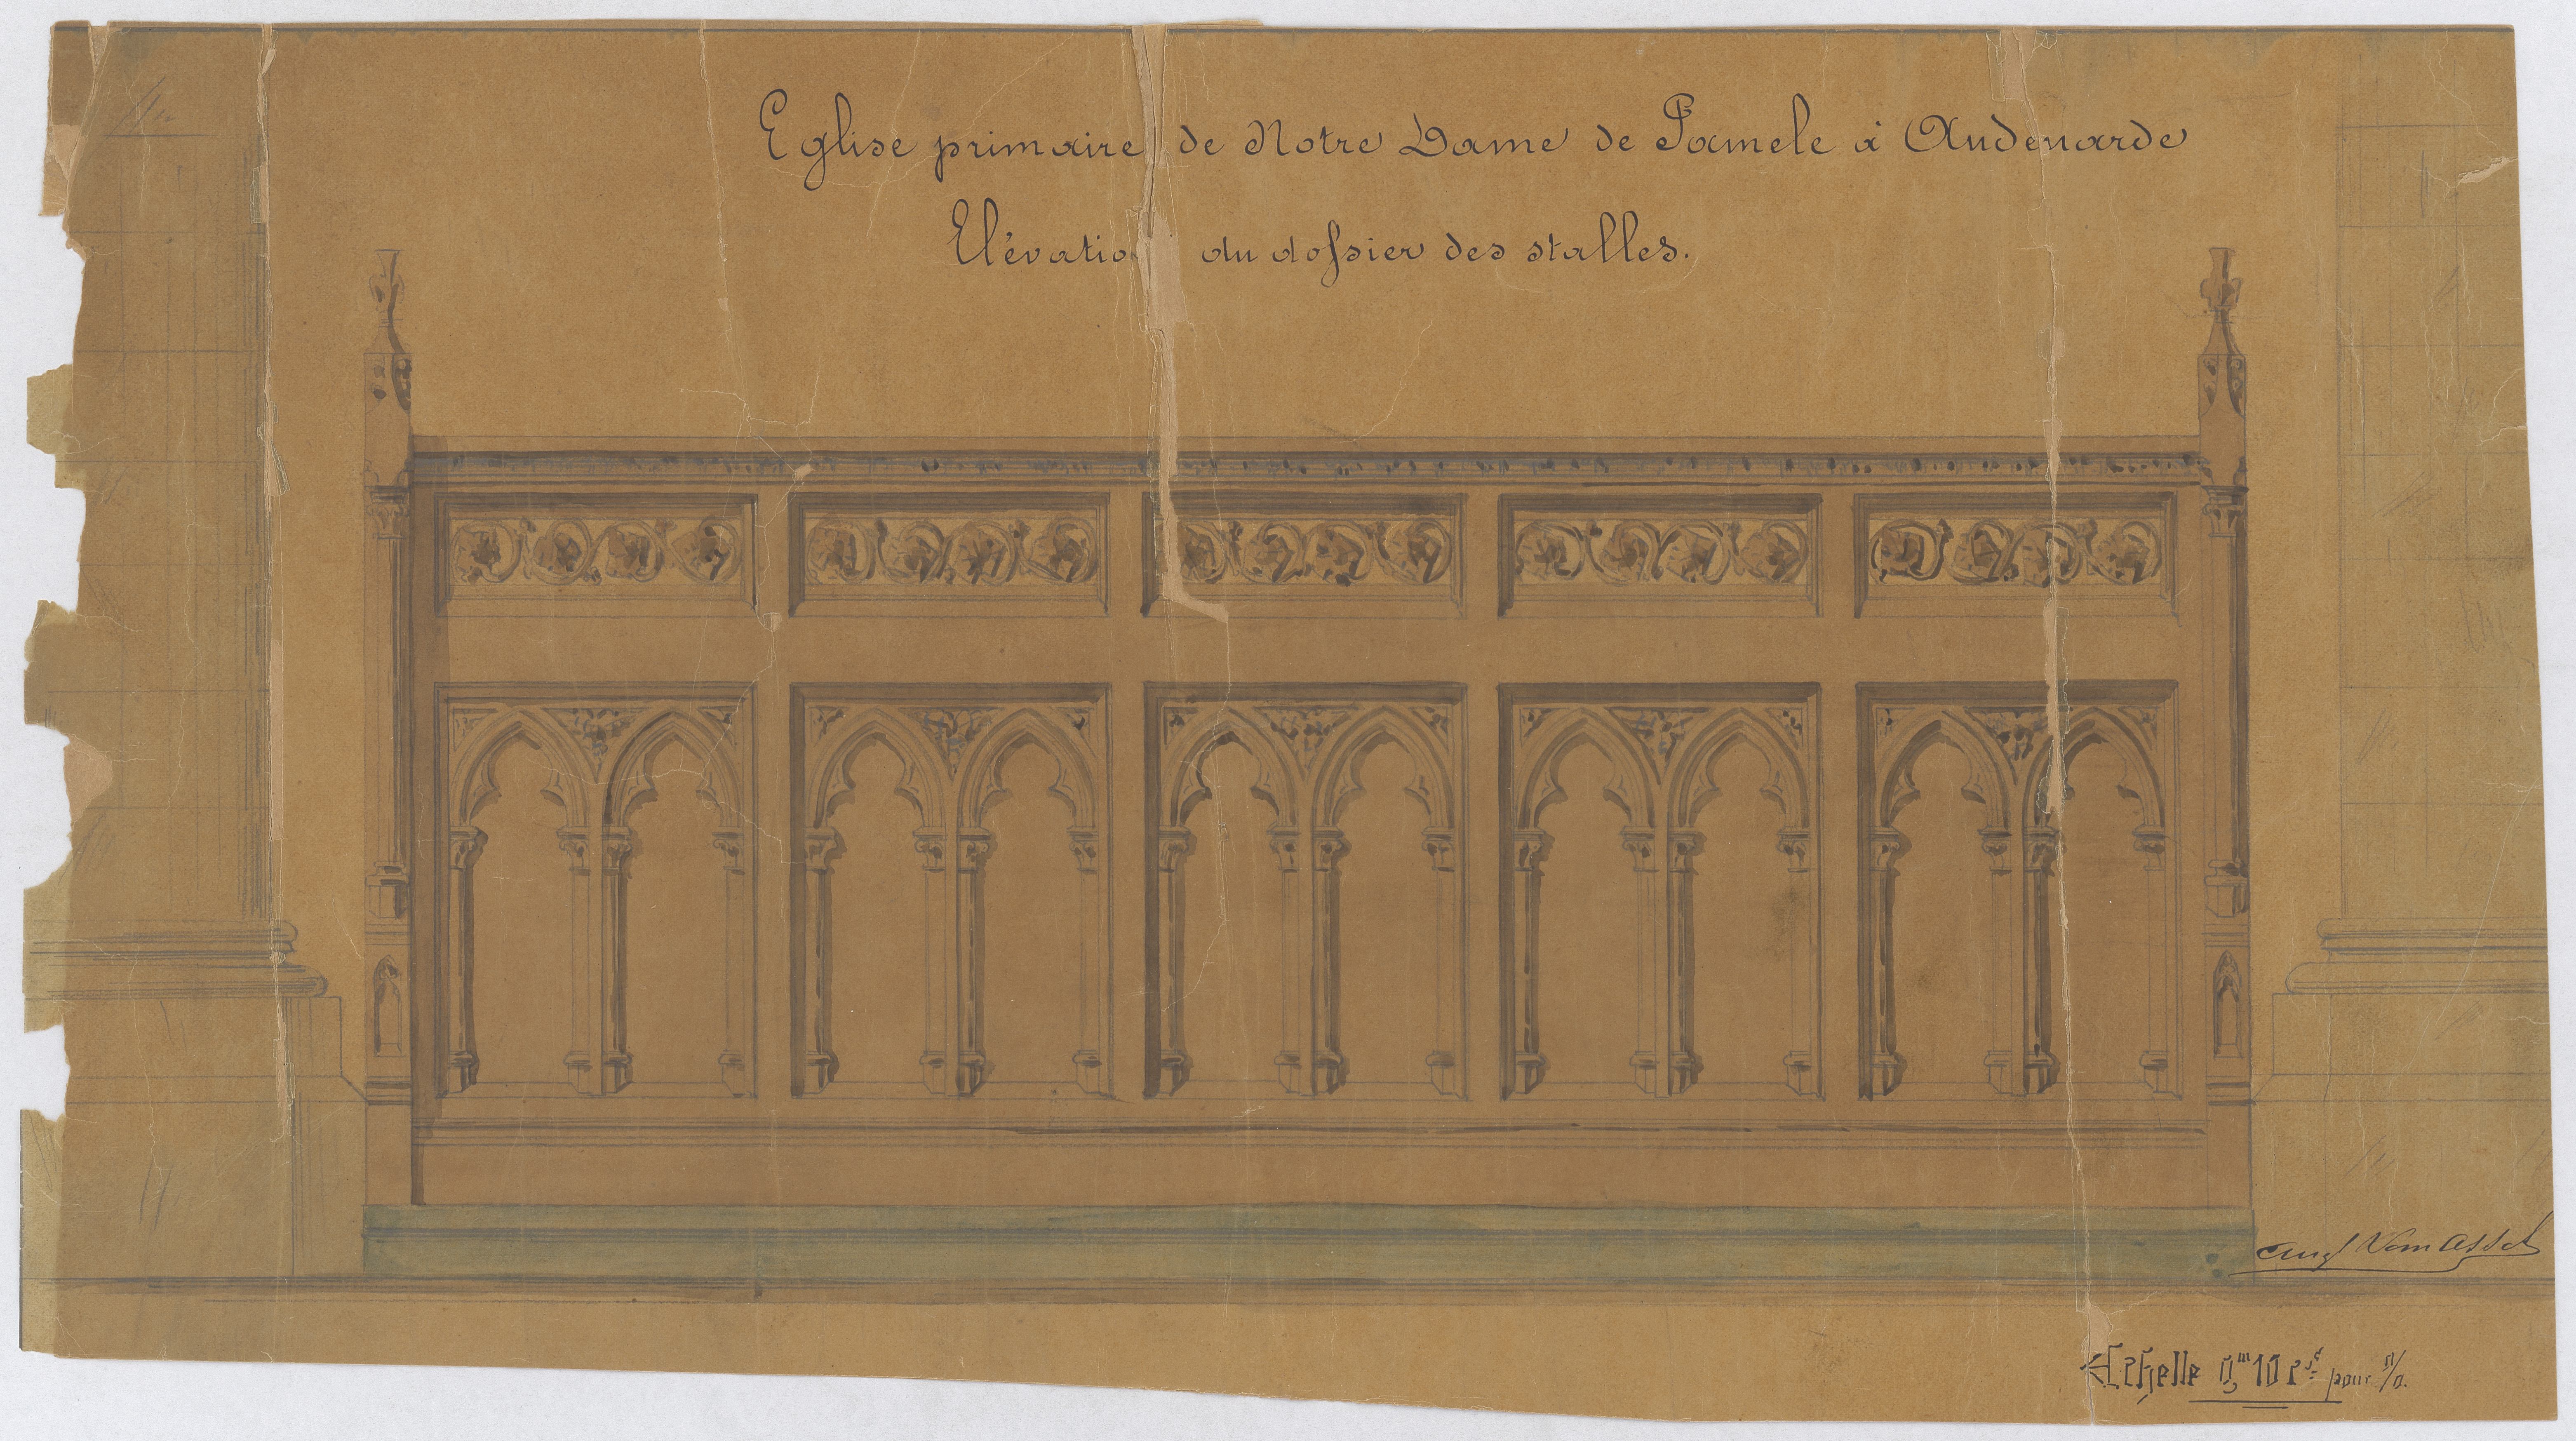 Eglise primaire de Notre Dame de Pamele à Audenarde
Elévatio du dossier des stalles.
Aug Van Assche
Echelle 0,m10 cs pour %.